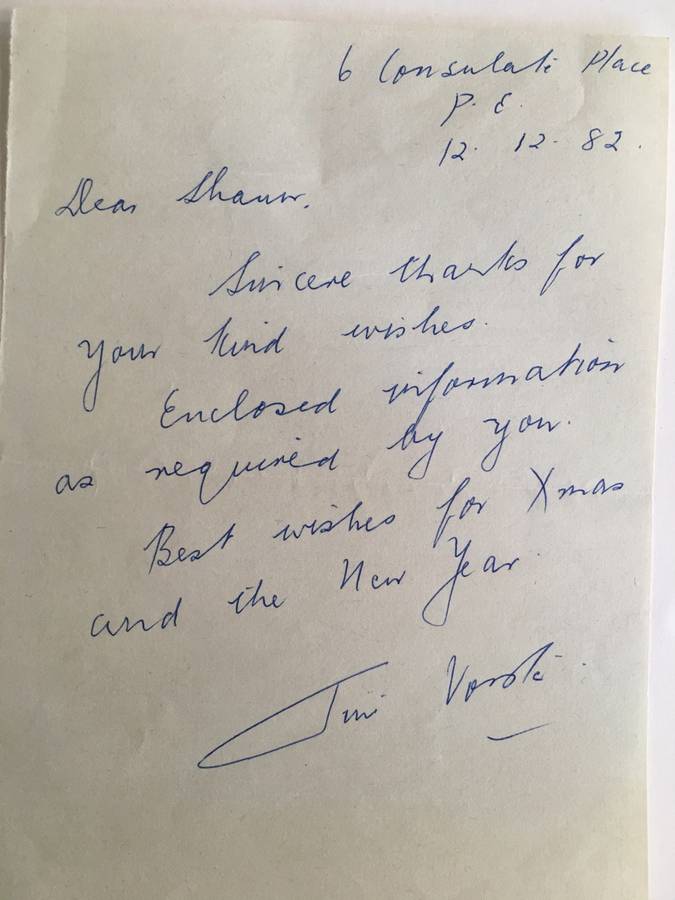 6 Consulate Place
P. E.
12. 12. 82.
Dear Shaun.
Sincere thanks for
your kind wishes.
Enclosed information
as required by you.
Best wishes for Xmas
and the New Year.